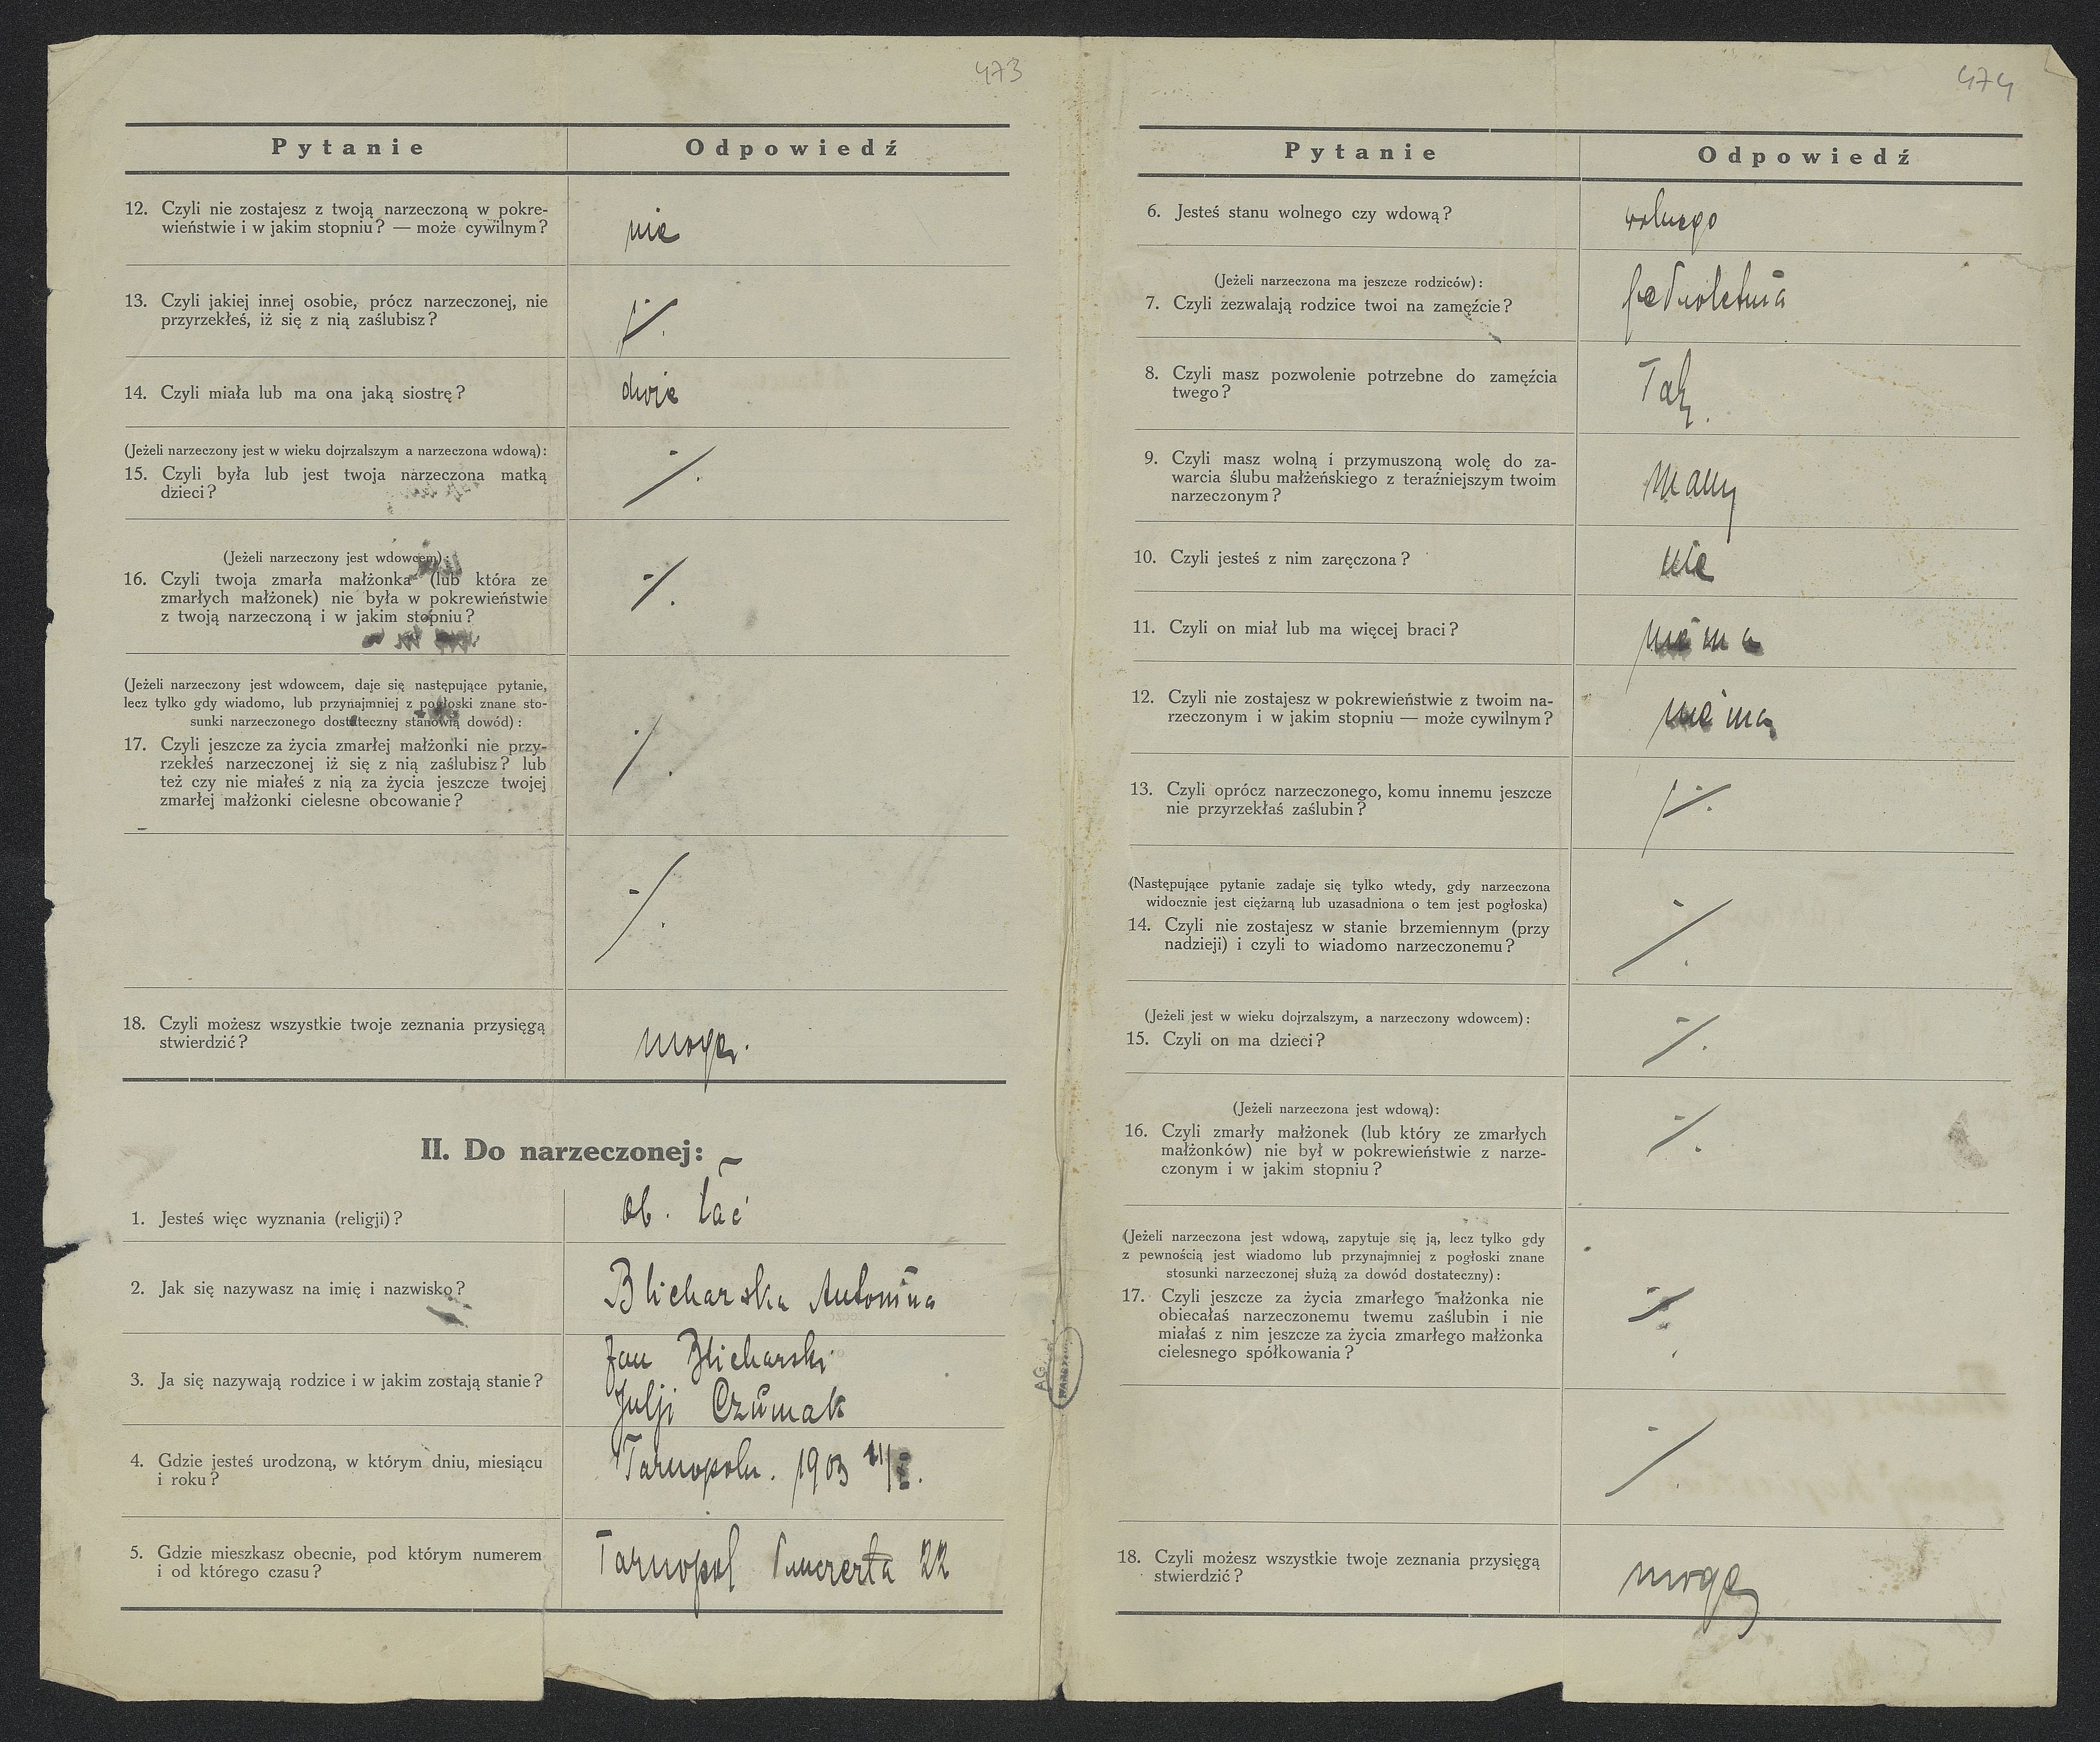 473
Pytanie
Odpowiedź
12. Czyli nie zostajesz z twoją narzeczoną w pokre-
wieństwie i w jakim stopniu? — może cywilnym?
nie
13. Czyli jakiej innej osobie, prócz narzeczonej, nie
przyrzekłeś, iż się z nią zaślubisz?
14. Czyli miała lub ma ona jaką siostrę?
dwie
(Jeżeli narzeczony jest w wieku dojrzalszym a narzeczona wdową):
15. Czyli była lub jest twoja narzeczona matką
dzieci?
(Jeżeli narzeczony jest wdowcem):
16. Czyli twoja zmarła małżonka (lub która ze
zmarłych małżonek) nie była w pokrewieństwie
z twoją narzeczoną i w jakim stopniu?
(Jeżeli narzeczony jest wdowcem, daje się następujące pytanie,
lecz tylko gdy wiadomo, lub przynajmniej z pogłoski znane sto-
sunki narzeczonego dostateczny stanowią dowód):
17. Czyli jeszcze za życia zmarłej małżonki nie przy-
rzekłeś narzeczonej iż się z nią zaślubisz? lub
też czy nie miałeś z nią za życia jeszcze twojej
zmarłej małżonki cielesne obcowanie?
18. Czyli możesz wszystkie twoje zeznania przysięgą
stwierdzić?
mogę.
II. Do narzeczonej:
1. Jesteś więc wyznania (religji)?
ob. łać
2. Jak się nazywasz na imię i nazwisko?
Blicharska Antonina
3. Ja się nazywają rodzice i w jakim zostają stanie?
Jan Blicharski
Julji Czumak
4. Gdzie jesteś urodzoną, w którym dniu, miesiącu
i roku?
Tarnopolu. 1903
5. Gdzie mieszkasz obecnie, pod którym numerem
i od którego czasu?
Tarnopol 22
474
Pytanie
Odpowiedź
6. Jesteś stanu wolnego czy wdową?
wolnego
(Jeżeli narzeczona ma jeszcze rodziców):
7. Czyli zezwalają rodzice twoi na zamęźcie?
pełnoletnia
8. Czyli masz pozwolenie potrzebne do zamęźcia
twego?
Tak.
9. Czyli masz wolną i przymuszoną wolę do za-
warcia ślubu małżeńskiego z teraźniejszym twoim
narzeczonym?
mam
10. Czyli jesteś z nim zaręczona?
nie
11. Czyli on miał lub ma więcej braci?
niema
12. Czyli nie zostajesz w pokrewieństwie z twoim na-
rzeczonym i w jakim stopniu — może cywilnym?
niema
13. Czyli oprócz narzeczonego, komu innemu jeszcze
nie przyrzekłaś zaślubin?
(Następujące pytanie zadaje się tylko wtedy, gdy narzeczona
widocznie jest ciężarną lub uzasadniona o tem jest pogłoska)
14. Czyli nie zostajesz w stanie brzemiennym (przy
nadzieji) i czyli to wiadomo narzeczonemu?
(Jeżeli jest w wieku dojrzalszym, a narzeczony wdowcem):
15. Czyli on ma dzieci?
(Jeżeli narzeczona jest wdową):
16. Czyli zmarły małżonek (lub który ze zmarłych
małżonków) nie był w pokrewieństwie z narze-
czonym i w jakim stopniu?
(Jeżeli narzeczona jest wdową, zapytuje się ją, lecz tylko gdy
z pewnością jest wiadomo lub przynajmniej z pogłoski znane
stosunki narzeczonej służą za dowód dostateczny):
17. Czyli jeszcze za życia zmarłego małżonka nie
obiecałaś narzeczonemu twemu zaślubin i nie
miałaś z nim jeszcze za życia zmarłego małżonka
cielesnego spółkowania?
18. Czyli możesz wszystkie twoje zeznania przysięgą
stwierdzić?
mogę